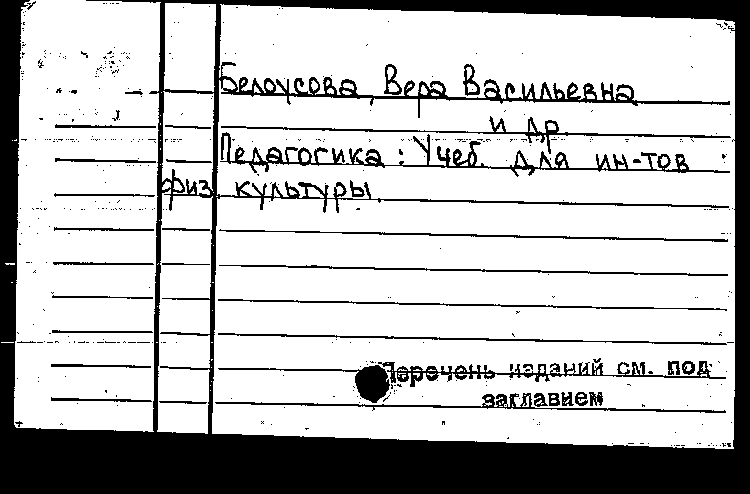 Белоусова, Вера Васильевна
и др.
Педагогика : Учеб. для ин-тов
физ. культуры.
Перечень изданий см. под
заглавием